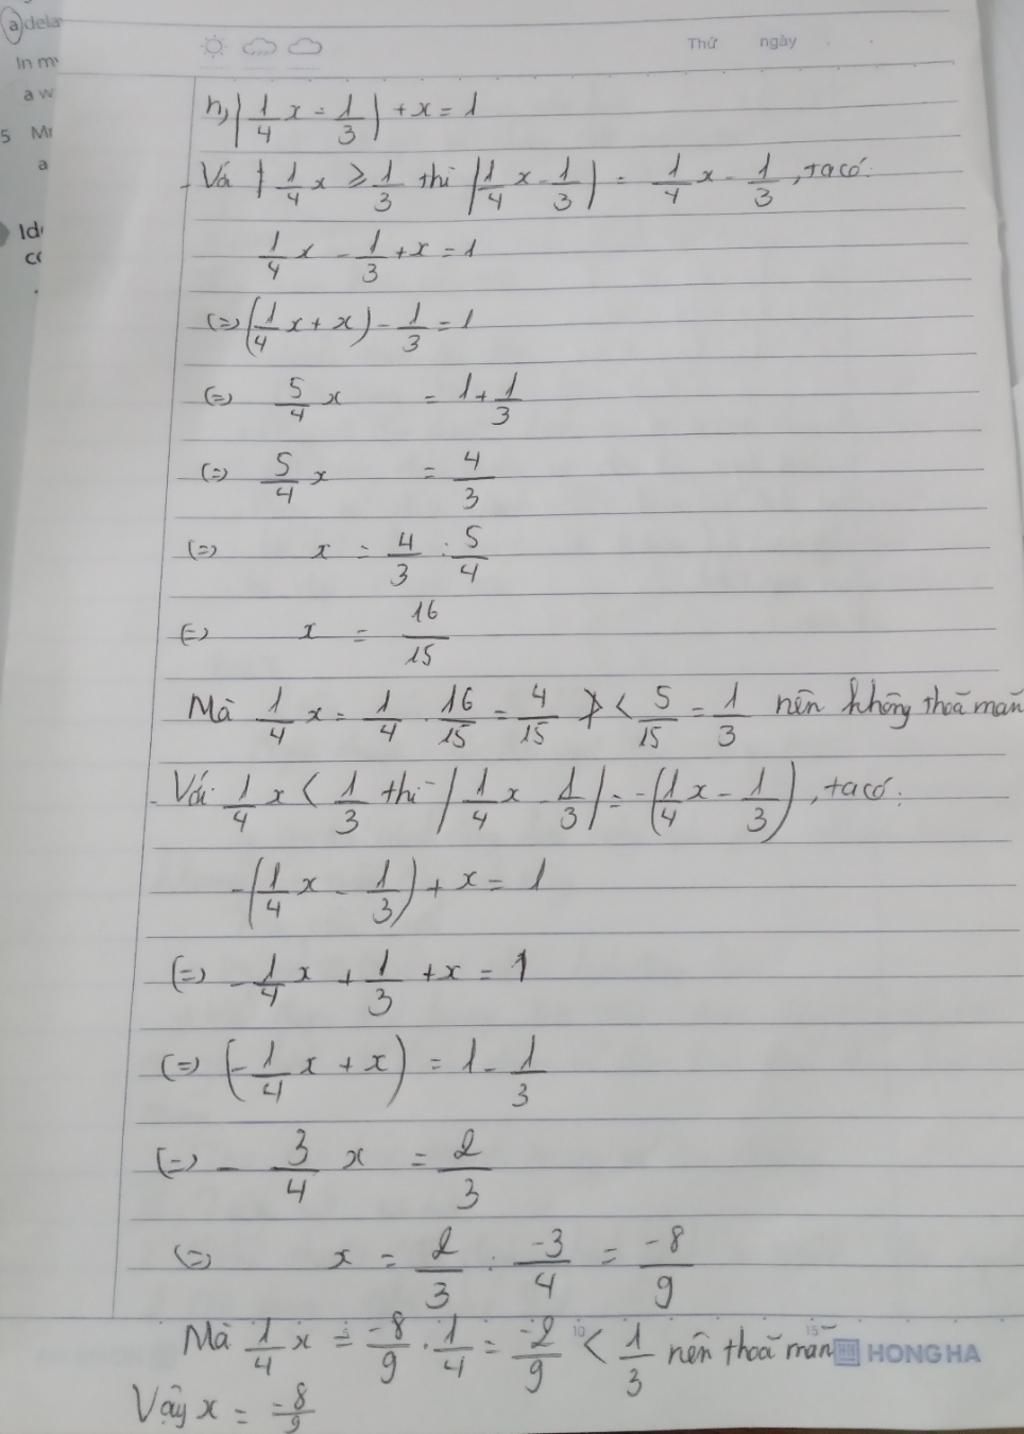 a) dela
In my
a w
5 Mr
a
Id
co
Thứ ngày
n, |1/4 x - 1/3| + x = 1
- Với 1/4 x ≥ 1/3 thì |1/4 x - 1/3| = 1/4 x - 1/3, ta có:
1/4 x - 1/3 + x = 1
(=) (1/4 x + x) - 1/3 = 1
(=) 5/4 x = 1 + 1/3
(=) 5/4 x = 4/3
(=) x = 4/3 : 5/4
(=) x = 16/15
Mà 1/4 x = 1/4 . 16/15 = 4/15 < 5/15 = 1/3 nên không thoã mãn
- Với 1/4 x < 1/3 thì |1/4 x - 1/3| = -(1/4 x - 1/3), ta có:
-(1/4 x - 1/3) + x = 1
(=) -1/4 x + 1/3 + x = 1
(=) (-1/4 x + x) = 1 - 1/3
(=) - 3/4 x = 2/3
(=) x = 2/3 : -3/4 = -8/9
Mà 1/4 x = -8/9 . 1/4 = -2/9 < 1/3 nên thoã mãn
5 10 15 HONG HA
Vậy x = -8/9